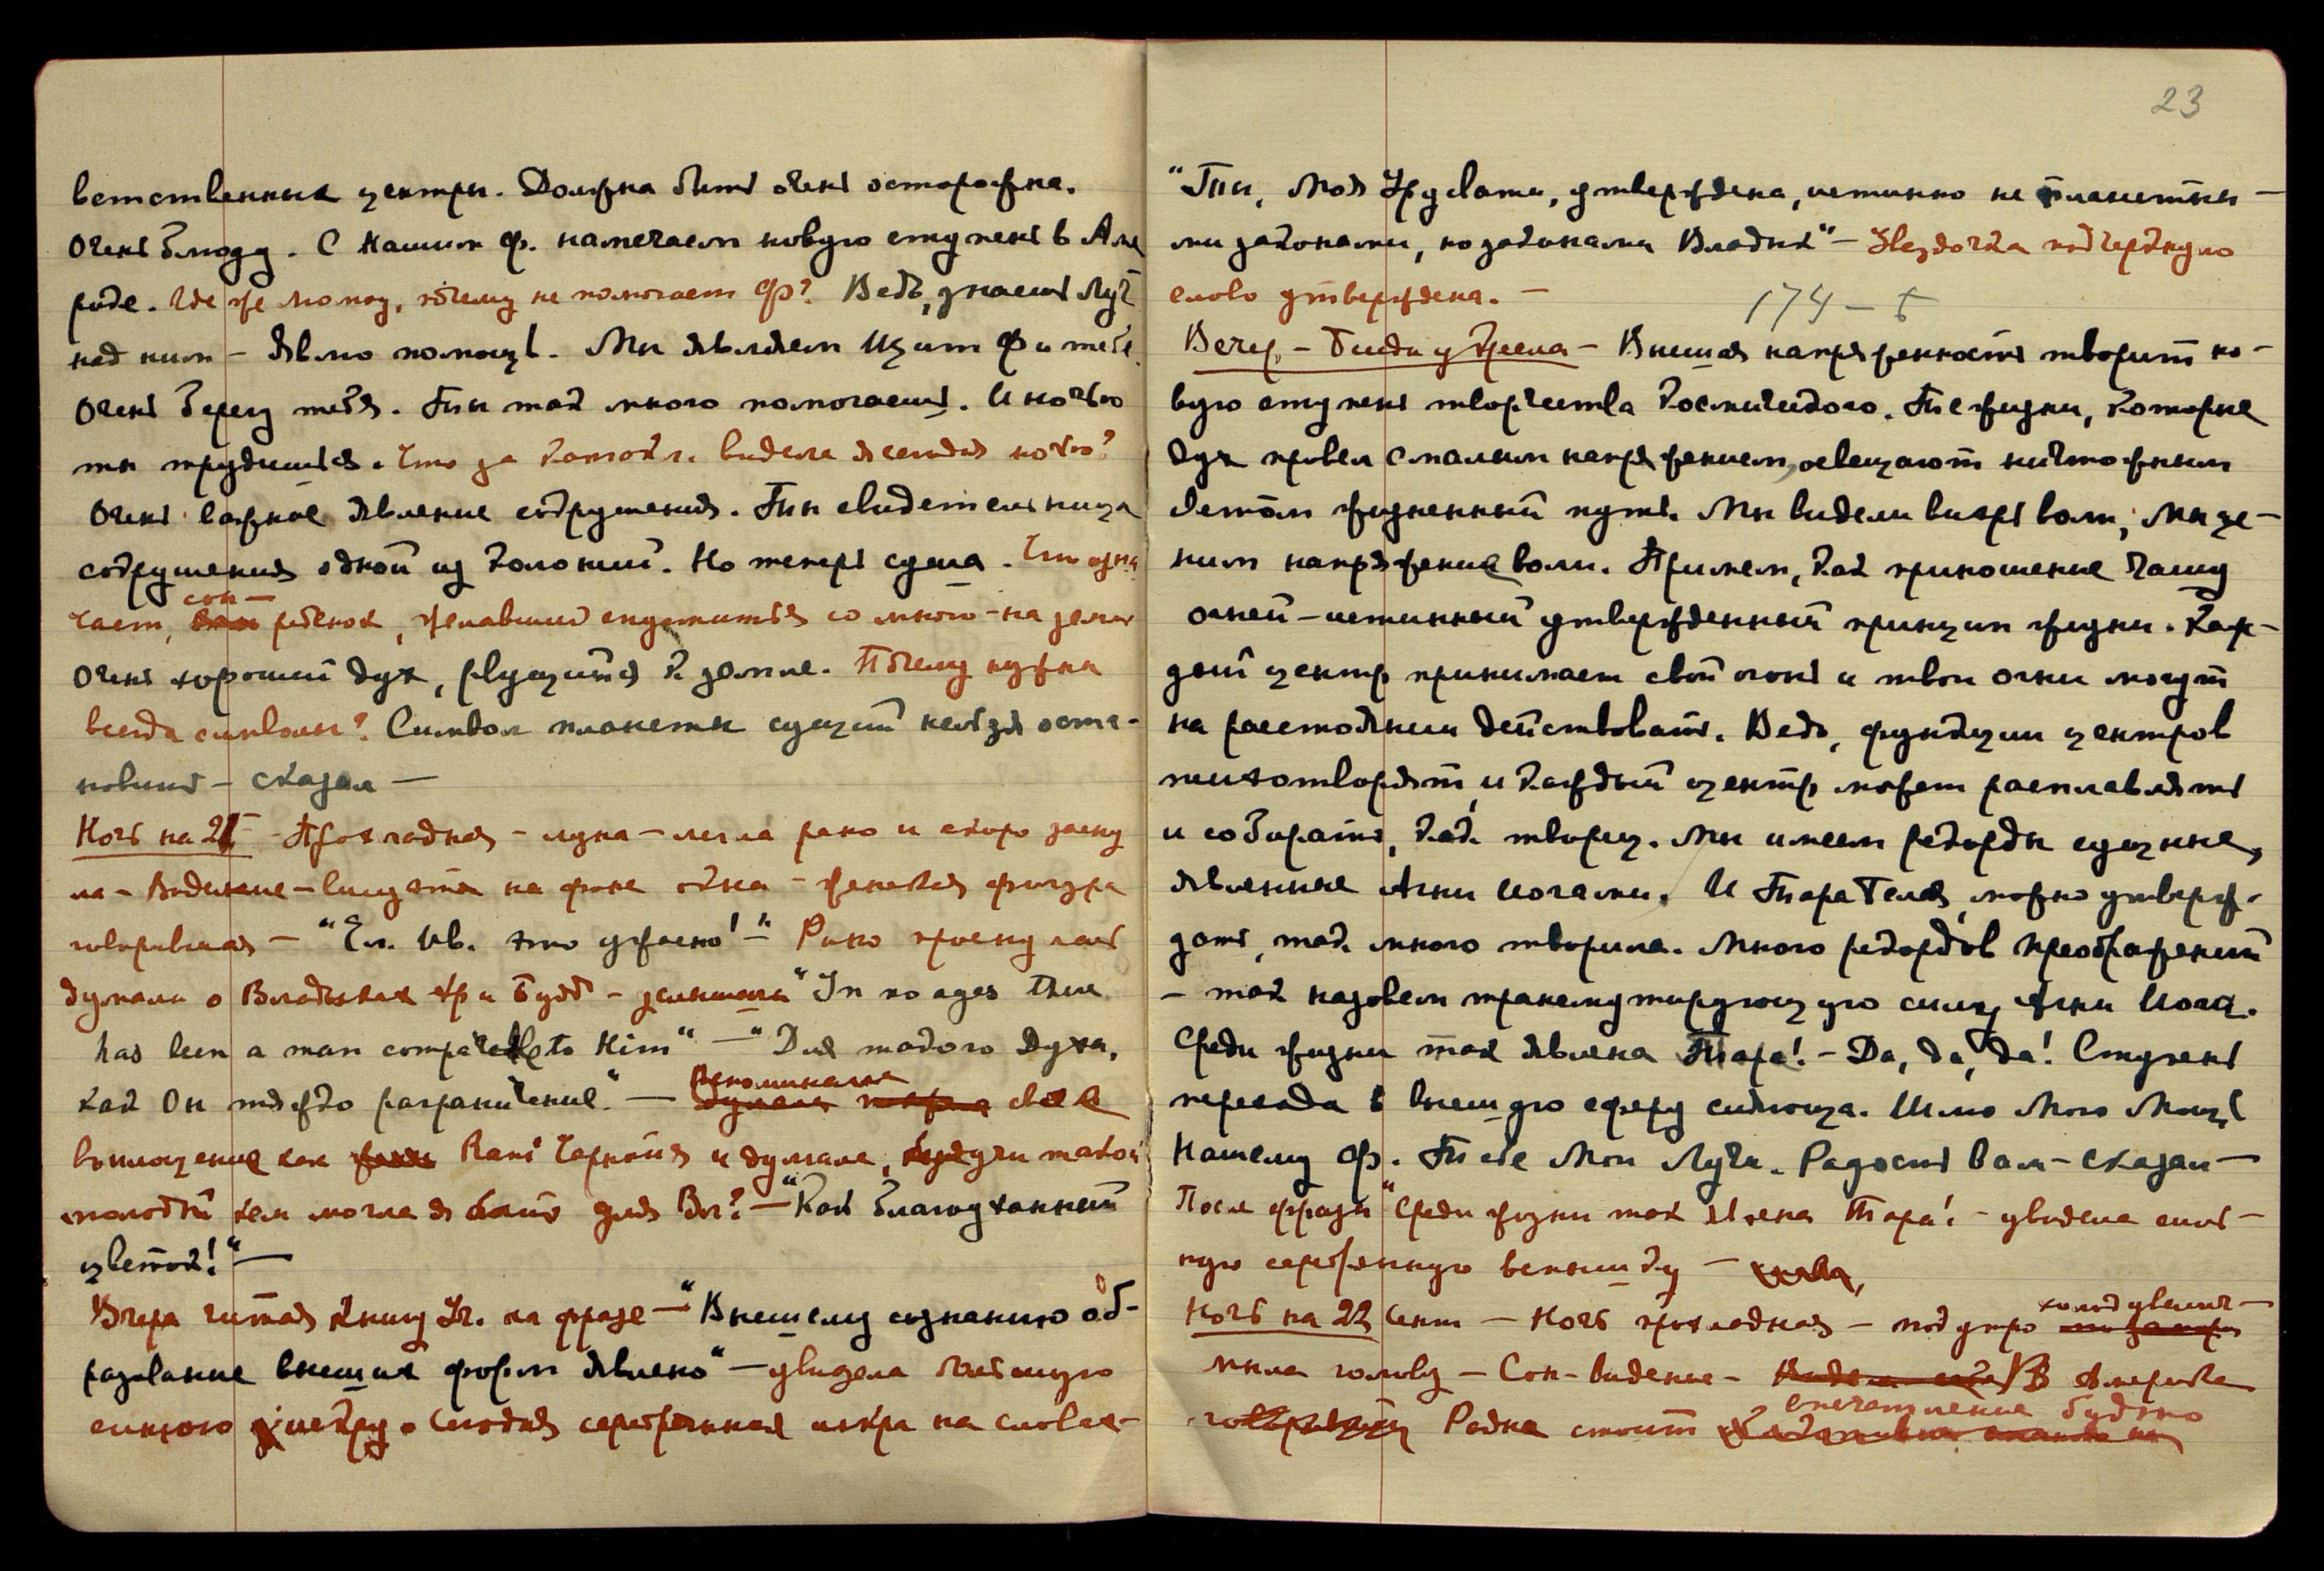 ветственных центры. Должна быть очень осторожна.
Очень блюду. С Нашим Ф. намечаем новую ступень в Аме
рике. Где же молоу, почему не помогает Ф? Ведь, знаешь Луч
над ним – явно помощь. Мы являем Щит Ф и тебе.
Очень берегу тебя. Ты так много помогаешь. И ночью
ты трудишься. Что за катакл. видела я сегодня ночью?
Очень важное явление сокрушения. Ты свидетельница
сокрушения одной из колоний. Но теперь суша. Что озна
сон –
чает, ребенок, желавший спуститься со мною – на землю
Очень хороший дух, рвущийся к земле. Почему нужны
всегда символы? Символ планеты сущий нельзя оста-
новить – сказал –
Ночь на 21 – Прохладная – луна – легла рано и скоро засну
ла – Видение – высунутая на фоне окна – женская фигура
говорившая – "Ел. Ив. это ужасно!" – Рано проснулась
думала о Владыках Хр и Будд – услышала "In no ages there
has been a man comparable to Him" – "Для такого Духа,
как Он тяжко разграничение." –
Вспоминала
свое
воплощение как Rani Черноия и думала, будучи такой
молодой кем могла я быть для Вл.? – "Как благоуханный
цветок!" –
Вчера читая Книгу Уч. на фразе – "Внешнему сознанию об-
разование внешних форм явлено" – увидела большую
синюю искру. Сегодня серебряная искра на словах –
23
"Ты, Моя Урусвати, утверждена, истинно не планетны –
ми законами, но законами Владык" – Звездочка подчеркнула
слово утверждена. –
174 – б
Вечер – Беседы у Трела – Высшая напряженность творит но –
вую ступень творчества Космического. Те жизни, которые
дух провел с малым напряжением, освещают ничтожным
светом жизненный путь. Мы видели вихрь воли, Мы це –
ним напряжение воли. Примем, как приношение Чашу
огней – истинный утвержденный принцип жизни. Каж –
дый центр принимает свой огонь и твои огни могут
на расстоянии действовать. Ведь, функции центров
многотворят, и каждый центр может расплавлять
и собирать, как творец. Мы имеем рекорды сущные,
явленные Агни Йогами. И Тара Белая, можно утверж –
дать, так много творила. Много рекордов преображений
– так назовем трансмутирующую силу Агни Йога.
Среди жизни так явлена Тара! – Да, да, да! Ступень
перехода в высшую сферу сияюща. Шлю Мою Мощь
Нашему Ф. Тебе Мои Лучи. Радость вам – сказал –
После фразы "Среди жизни так явлена Тара! – увидела силь –
ную серебряную вспышку –
Ночь на 22 Сент – Ночь прохладная – под утро
холод увелич –
мыла голову – Сон – видение – В Америке
впечатление будто
Радна стоит